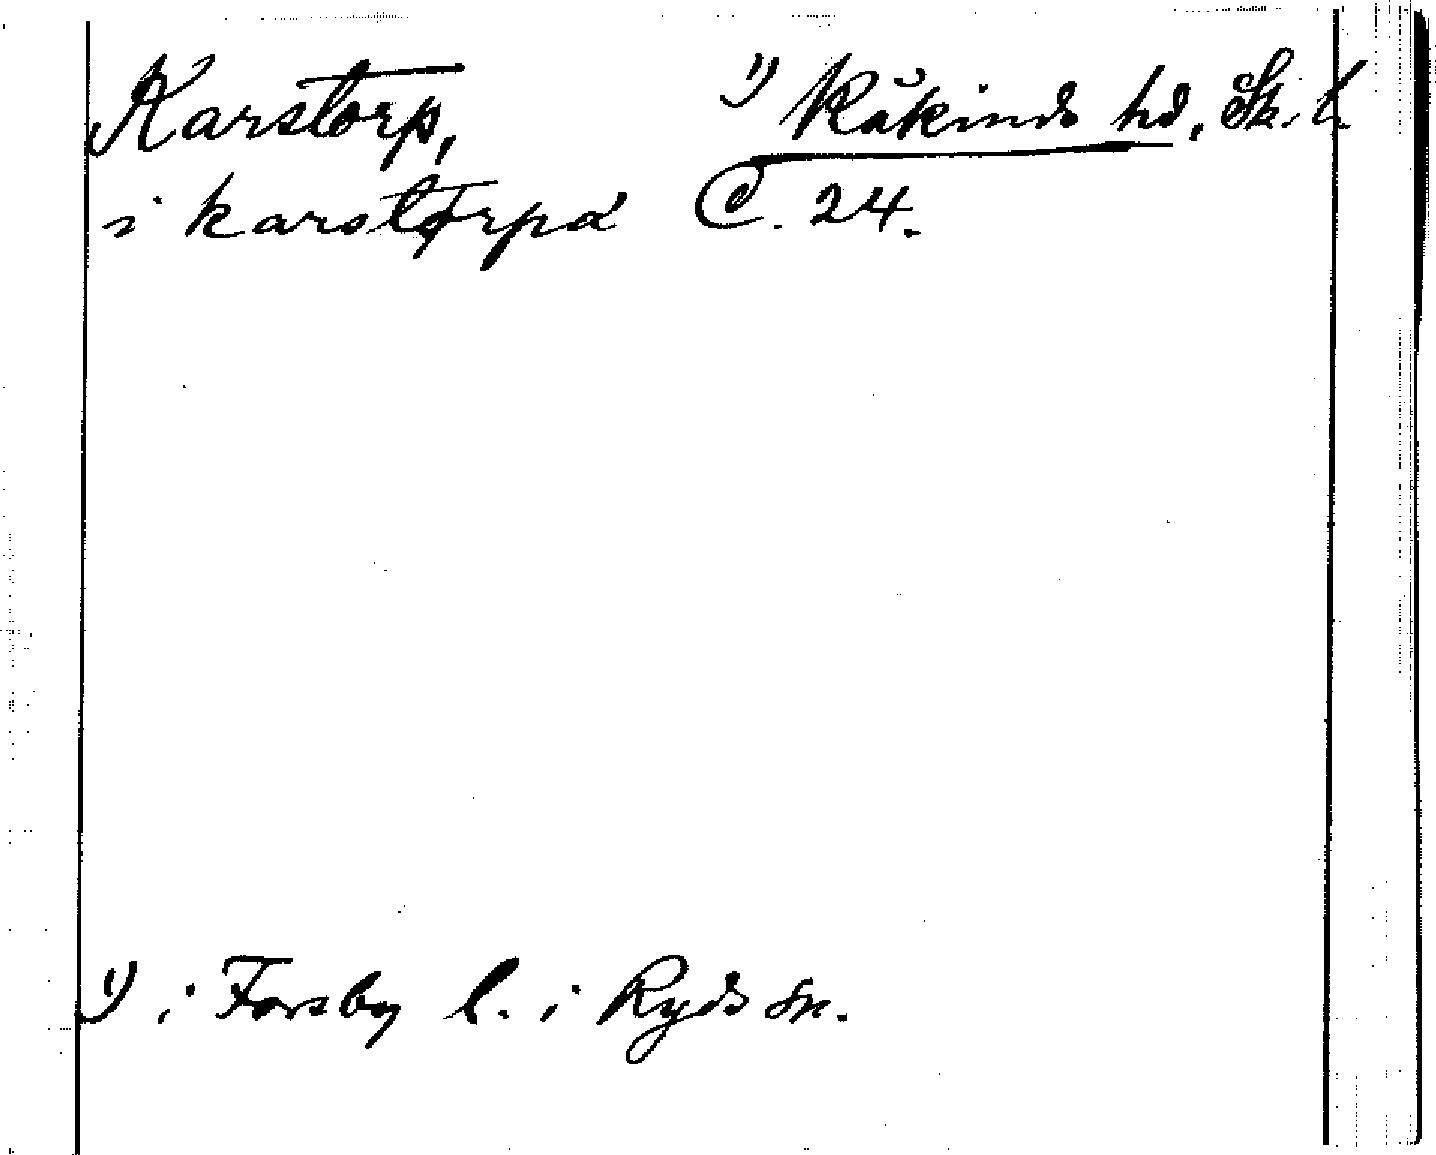 Karstorp, 1) Kåkinds hd, Sk. l.
i karstorpa C. 24.
1) i Forsby l. i Ryds sn.